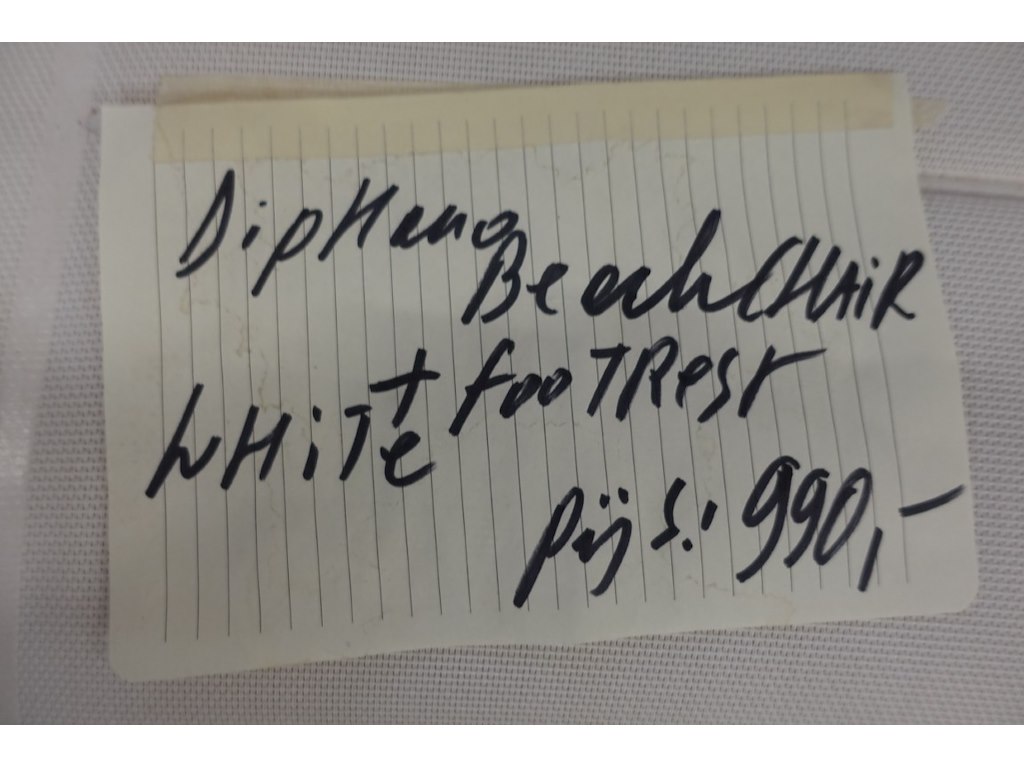 DipHano
Beach CHAiR
WHiTe + fooTResT
pijs: 990,-